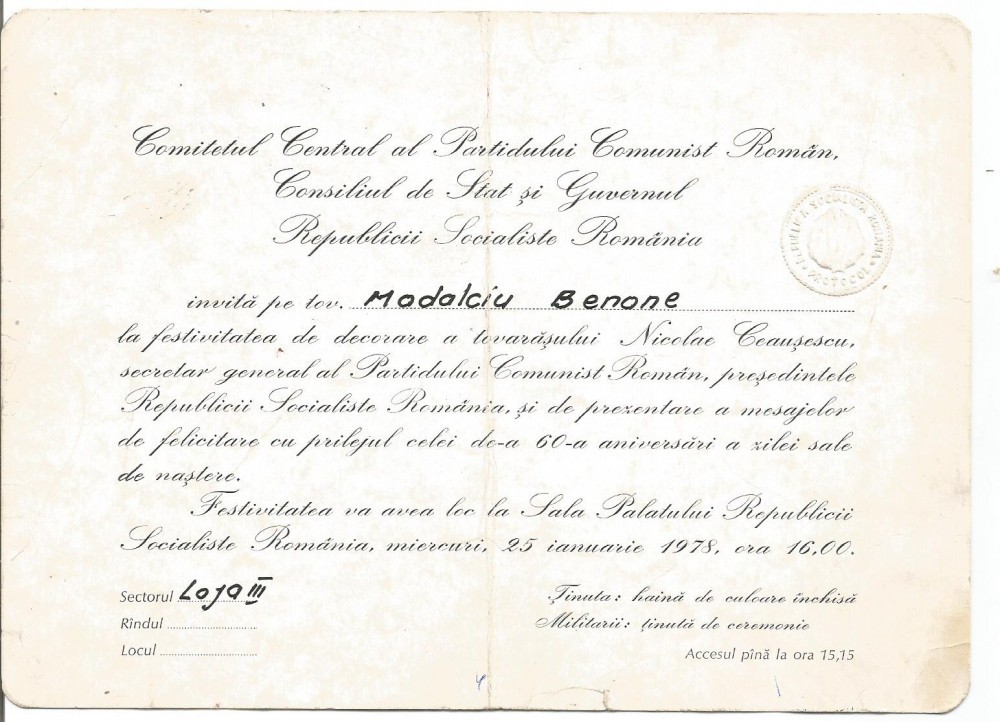 Comitetul Central al Partidului Comunist Român,
Consiliul de Stat și Guvernul
Republicii Socialiste România
invită pe tov. Madalciu Benone
la festivitatea de decorare a tovarășului Nicolae Ceaușescu,
secretar general al Partidului Comunist Român, președintele
Republicii Socialiste România, și de prezentare a mesajelor
de felicitare cu prilejul celei de-a 60-a aniversări a zilei sale
de naștere.
Festivitatea va avea loc la Sala Palatului Republicii
Socialiste România, miercuri, 25 ianuarie 1978, ora 16,00.
Sectorul Loja III
Rîndul
Locul
Ținuta: haină de culoare închisă
Militarii: ținută de ceremonie
Accesul pînă la ora 15,15
SOCIALISTA ROMANIA
PROTOCOL